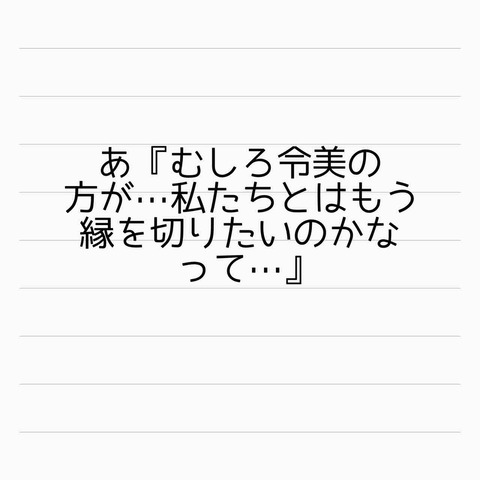 あ『むしろ令美の
方が…私たちとはもう
縁を切りたいのかな
って…』